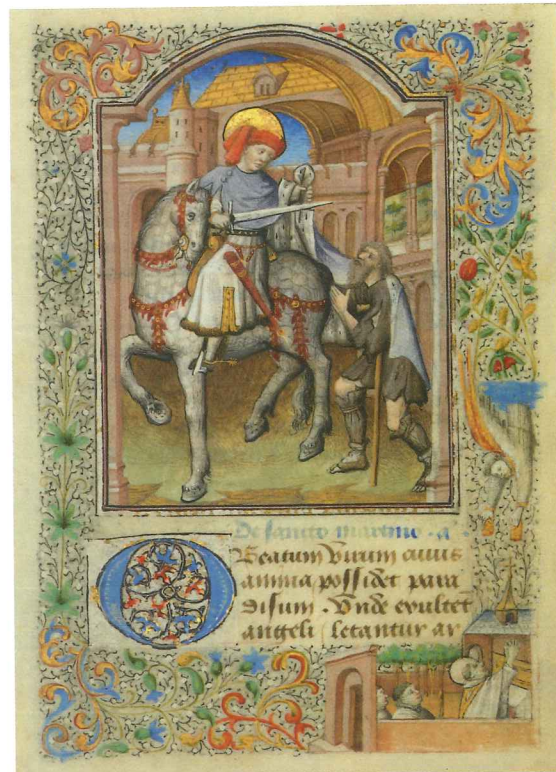 De sancto martino . a
O Beatum virum cuius
anima possidet para
disum . Vnde exultet
angeli letantur ar